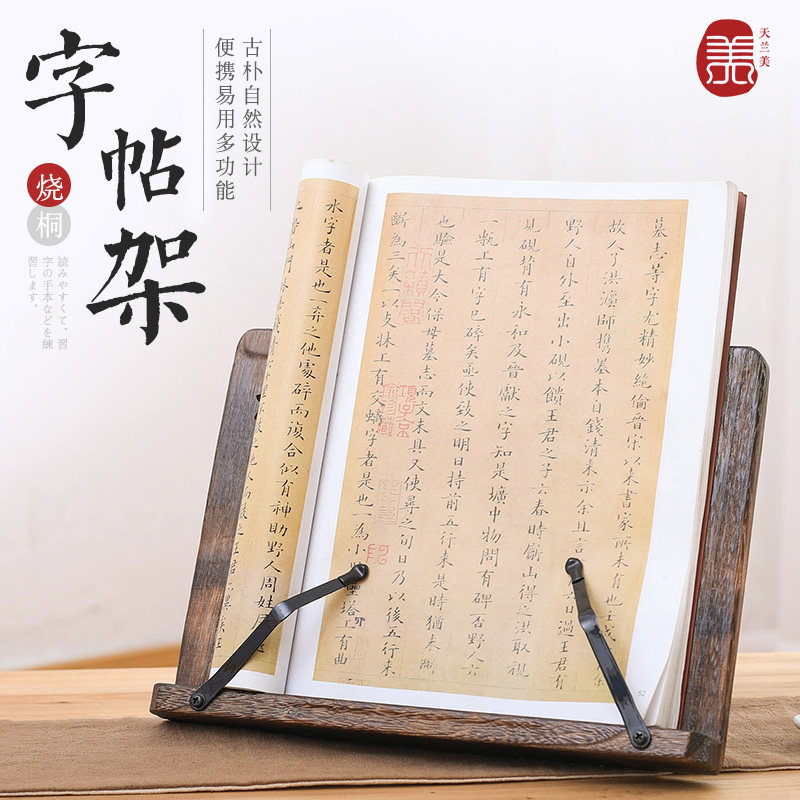 字帖架
烧桐
古朴自然设计
便携易用多功能
読みやすくて、習
字の手本などを練
習します。
美
天兰美
墓志等字尤精妙絶倫晉宋以来書家所未有也壬戌
故人了洪瀘師携墓本自錢清来示余且言日過王君有
野人自外至出小硯以饋王君之子六春時斸山得之洪取視
見硯背有永和及晉獻之字知是壙中物問有碑否野人六
一甎上有字已碎矣亟使致之明日持前五行来是時猶未斷
也驗是大令保母墓志而文未具又使尋之旬日乃以後五行来
斷為三矣一以支牀上有交螭字者是也一為小壘塔上有曲
水字者是也一弃之他處碎而復合似有神助野人周姓
52